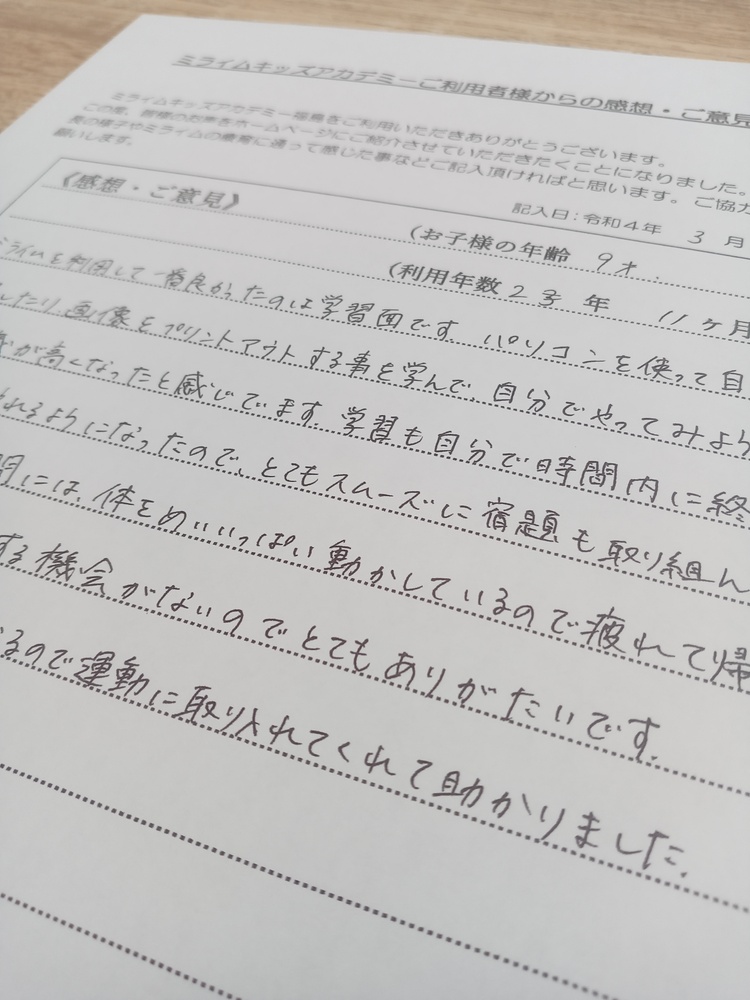 ミライムキッズアカデミーご利用者様からの感想・ご意見
ミライムキッズアカデミー福島をご利用いただきありがとうございます。
この度、皆様のお声をホームページにご紹介させていただきたくことになりました。
長の様子やミライムの療育に通って感じた事などご記入頂ければと思います。ご協力
願いします。
《感想・ご意見》
記入日:令和4年 3 月
(お子様の年齢 9才.
(利用年数 2 年 11ヶ月
ライムを利用して一番良かったのは学習面です。パソコンを使って自
したり、画像をプリントアウトする事を学んで、自分でやってみよう
が高くなったと感じています。学習も自分で時間内に終
れるようになったので、とてもスムーズに宿題も取り組ん
間には、体をめいいっぱい動かしているので疲れて帰
する機会がないのでとてもありがたいです。
るので運動に取り入れてくれて助かりました。